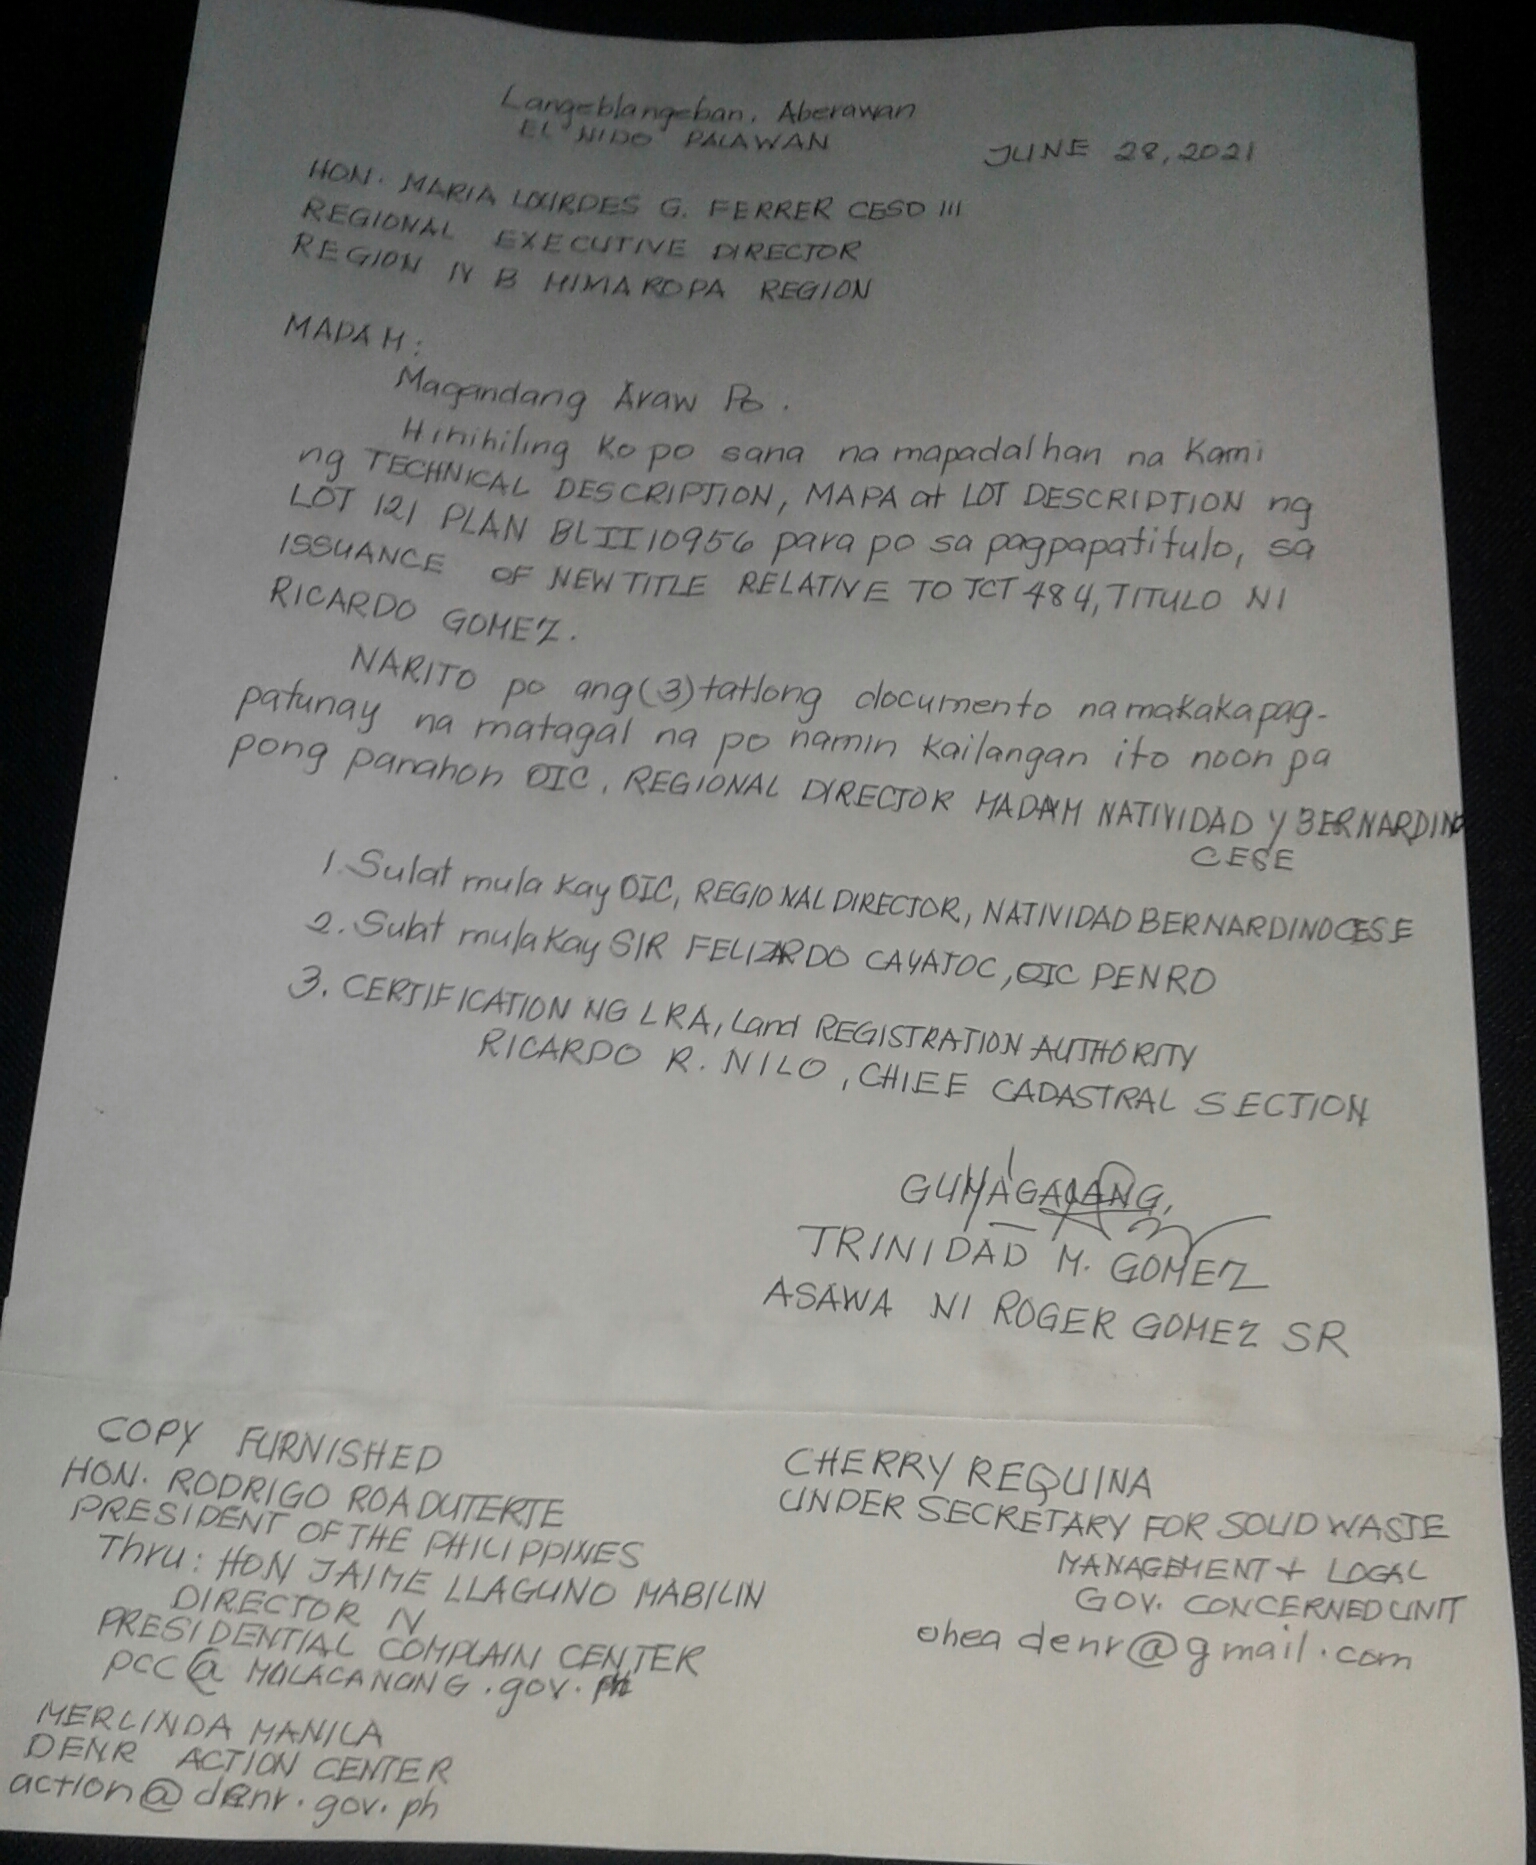 Langeblangeban, Aberawan
EL NIDO PALAWAN
JUNE 28, 2021
HON. MARIA LOURDES G. FERRER CESO III
REGIONAL EXECUTIVE DIRECTOR
REGION IV B MIMAROPA REGION
MADAM:
Magandang Araw Po.
Hinihiling Ko po sana na mapadalhan na Kami
ng TECHNICAL DESCRIPTION, MAPA at LOT DESCRIPTION ng
LOT 121 PLAN BL II 10956 para po sa pagpapatitulo, sa
ISSUANCE OF NEW TITLE RELATIVE TO TCT 484, TITULO NI
RICARDO GOMEZ.
NARITO po ang (3) tatlong documento na makakapag-
patunay na matagal na po namin kailangan ito noon pa
pong panahon OIC, REGIONAL DIRECTOR MADAM NATIVIDAD Y BERNARDINO
CESE
1. Sulat mula kay OIC, REGIONAL DIRECTOR, NATIVIDAD BERNARDINO CESE
2. Sulat mula kay SIR FELIZARDO CAYATOC, OIC PENRO
3. CERTIFICATION NG LRA, Land REGISTRATION AUTHORITY
RICARDO R. NILO, CHIEF CADASTRAL SECTION
GUMAGALANG,
TRINIDAD M. GOMEZ
ASAWA NI ROGER GOMEZ SR
COPY FURNISHED
HON. RODRIGO ROA DUTERTE
PRESIDENT OF THE PHILIPPINES
Thru: HON JAIME LLAGUNO MABILIN
DIRECTOR IV
PRESIDENTIAL COMPLAIN CENTER
PCC@MALACANANG.gov.ph
MERLINDA MANILA
DENR ACTION CENTER
action@denr.gov.ph
CHERRY REQUINA
UNDER SECRETARY FOR SOLID WASTE
MANAGEMENT + LOCAL
GOV. CONCERNED UNIT
ohea denr@gmail.com